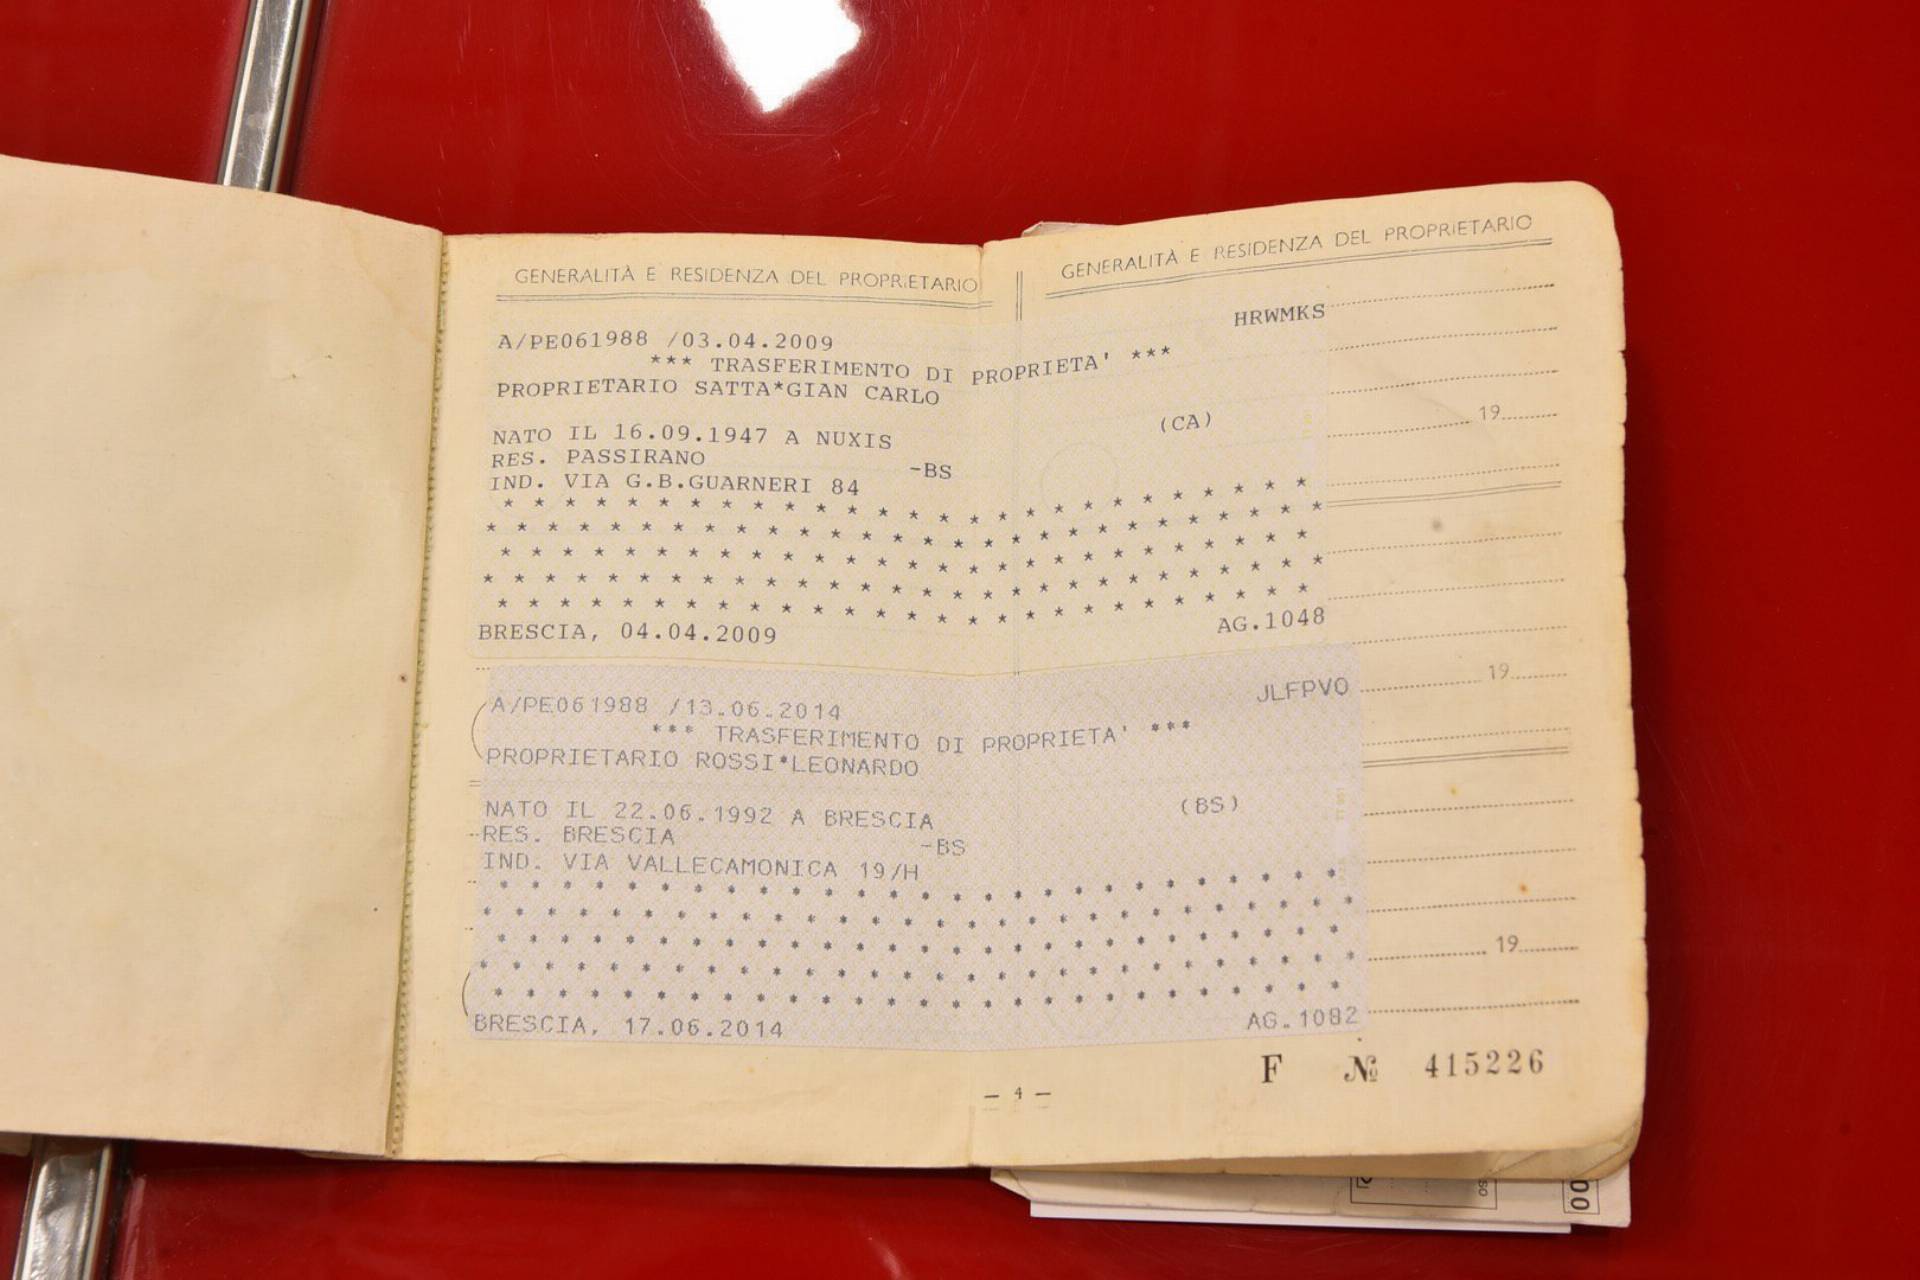 GENERALITÀ E RESIDENZA DEL PROPRIETARIO
GENERALITÀ E RESIDENZA DEL PROPRIETARIO
HRWMKS
A/PE061988 /03.04.2009
*** TRASFERIMENTO DI PROPRIETA' ***
PROPRIETARIO SATTA*GIAN CARLO
NATO IL 16.09.1947 A NUXIS (CA)
RES. PASSIRANO -BS
IND. VIA G.B.GUARNERI 84
BRESCIA, 04.04.2009 AG.1048
19
JLFPVO
A/PE061988 /13.06.2014
*** TRASFERIMENTO DI PROPRIETA' ***
PROPRIETARIO ROSSI*LEONARDO
NATO IL 22.06.1992 A BRESCIA (BS)
RES. BRESCIA -BS
IND. VIA VALLECAMONICA 19/H
BRESCIA, 17.06.2014 AG.1082
19
19
F № 415226
– 4 –
00